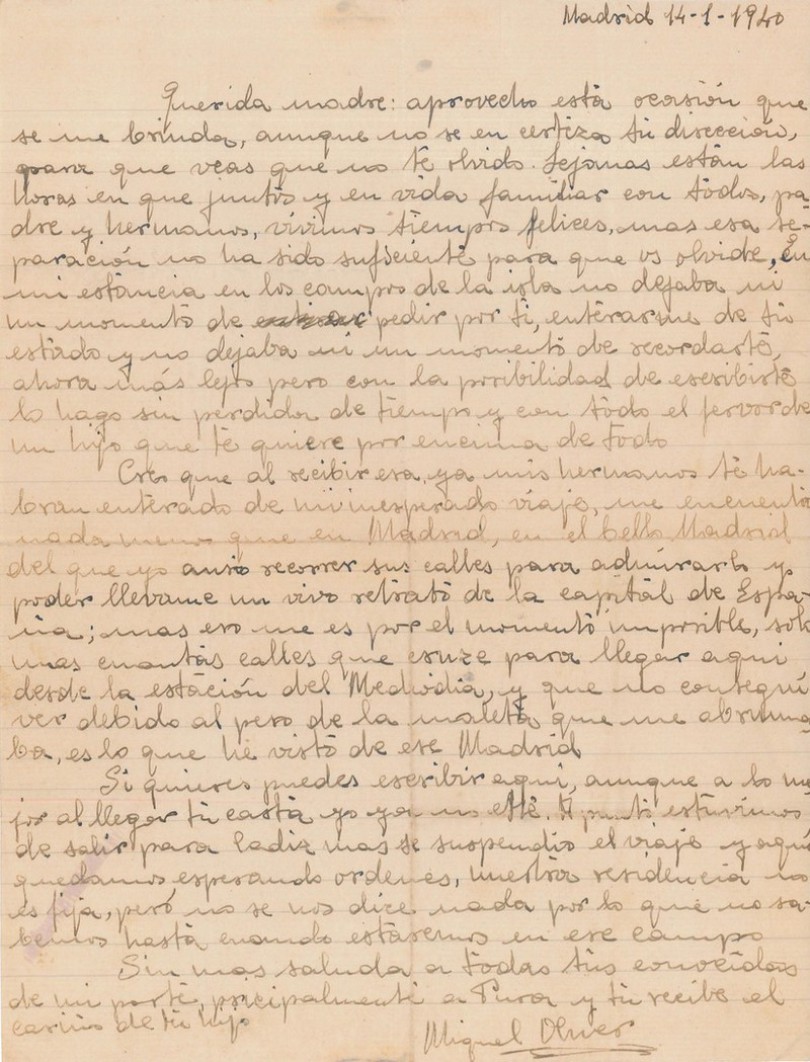 Madrid 14-1-1940
Querida madre: aprovecho esta ocasión que
se me brinda, aunque no se en certeza tu dirección,
para que veas que no te olvido. Lejanas están las
horas en que juntos y en vida familiar con todos, pa-
dre y hermanos, vivimos tiempos felices, mas esa se-
paración no ha sido suficiente para que os olvide, En
mi estancia en los campos de la isla no dejaba ni
un momento de pedir por ti, enterarme de tu
estado y no dejaba ni un momento de recordarte,
ahora más lejos pero con la posibilidad de escribirte
lo hago sin perdida de tiempo y con todo el fervor de
un hijo que te quiere por encima de todo
Creo que al recibir esa, ya mis hermanos te ha-
bran enterado de mi inesperado viaje, me encuentro
nada menos que en Madrid, en el bello Madrid
del que yo ansio recorrer sus calles para admirarlo y
poder llevarme un vivo retrato de la capital de Espa-
ña; mas eso me es por el momento imposible, solo
unas cuantas calles que cruze para llegar aqui
desde la estación del Mediodia, y que no conseguí
ver debido al peso de la maleta que me abruma-
ba, es lo que hé visto de ese Madrid
Si quieres puedes escribir aquí, aunque a lo me
jor al llegar tu carta yo ya no esté. A punto estuvimos
de salir para Cadiz mas se suspendio el viaje y aquí
quedamos esperando ordenes, nuestra residencia no
es fija, peró no se nos dice nada por lo que no sa-
bemos hasta cuando estaremos en ese campo
Sin mas saluda a todas tus conocidas
de mi parte, pricipalmente a Pura y tu recibe el
cariño de tu hijo
Miguel Oliver